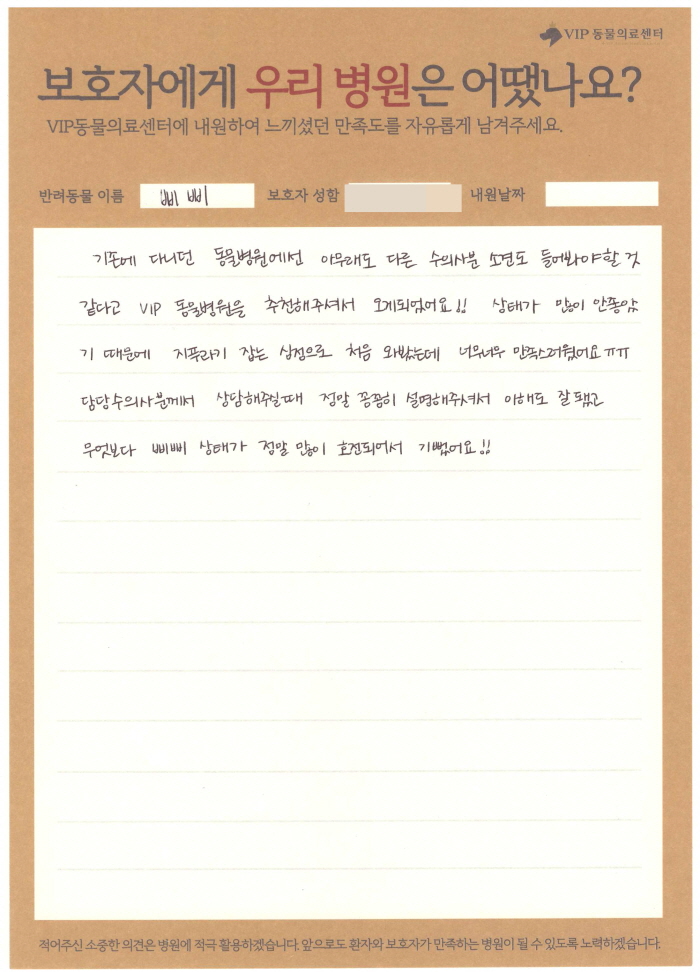 VIP 동물의료센터
보호자에게 우리 병원은 어땠나요?
VIP동물의료센터에 내원하여 느끼셨던 만족도를 자유롭게 남겨주세요.
반려동물 이름 삐삐 보호자 성함 내원날짜
기존에 다니던 동물병원에선 아무래도 다른 수의사분 소견도 들어봐야할 것
같다고 VIP 동물병원을 추천해주셔서 오게되었어요!! 상태가 많이 안좋았
기 때문에 지푸라기 잡는 심정으로 처음 와봤는데 너무너무 만족스러웠어요ㅠㅠ
담당수의사분께서 상담해주실때 정말 꼼꼼히 설명해주셔서 이해도 잘 됐고
무엇보다 삐삐 상태가 정말 많이 호전되어서 기뻤어요!!
적어주신 소중한 의견은 병원에 적극 활용하겠습니다. 앞으로도 환자와 보호자가 만족하는 병원이 될 수 있도록 노력하겠습니다.